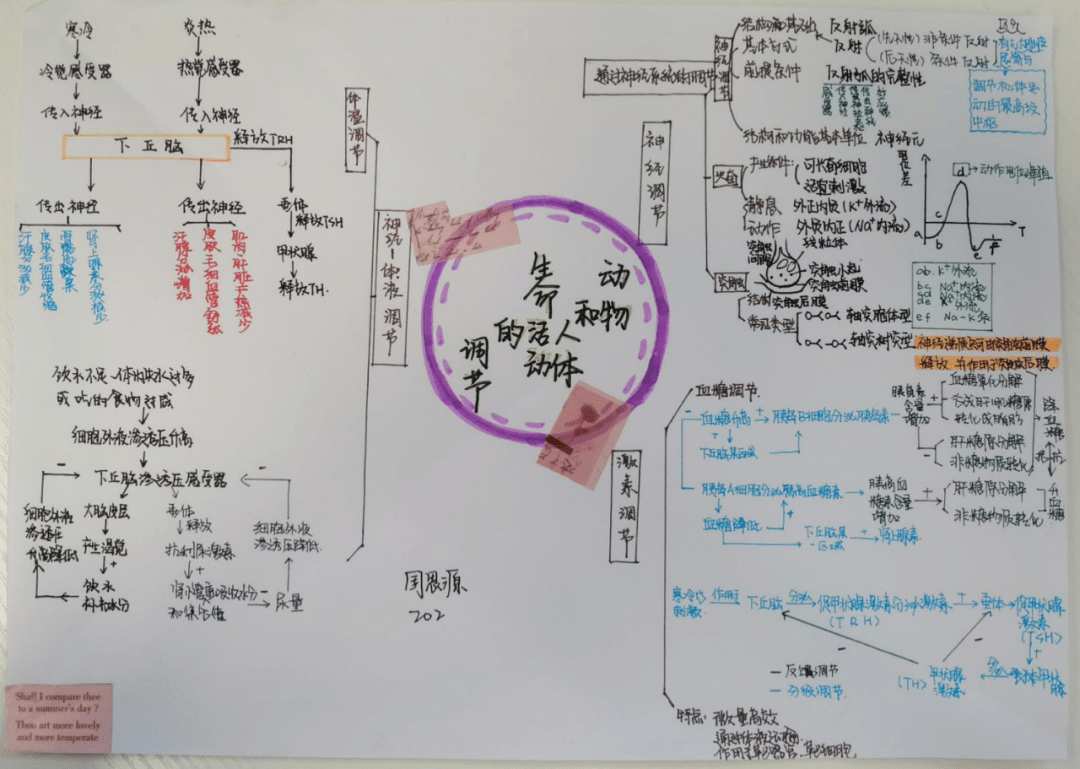 寒冷
炎热
冷觉感受器
热觉感受器
传入神经
传入神经
下丘脑
释放TRH
传出神经
传出神经
垂体
释放TSH
甲状腺
释放TH
汗腺分泌减少
皮肤毛细血管收缩
肾上腺素分泌
汗腺分泌增加
皮肤毛细血管舒张
肌肉肝脏产热减少
体温调节
神经-体液调节
饮水不足、体内失水过多
或吃的食物过咸
细胞外液渗透压升高
下丘脑渗透压感受器
细胞外液渗透压
降低
大脑皮层
产生渴觉
+
饮水
补充水分
垂体
释放
抗利尿激素
+
肾小管
重吸收水分
尿量
细胞外液
渗透压降低
动物和人体
生命活动
的调节
通过神经系统的调节
神经调节
神经调节
结构
基础
反射弧
基本方式
反射
非条件反射
条件反射
前提条件
反射弧的完整性
调节机体
活动的最高级
中枢
结构和功能基本单位 神经元
兴奋
产生条件:
可兴奋细胞
适宜刺激
静息
外正内负(K⁺外流)
动作
外负内正(Na⁺内流)
线粒体
突触
突触间隙
突触小泡
突触前膜
结构
突触后膜
常见类型
轴突胞体型
轴突树突型
电位差
d
动作电位峰值
a
b
c
e
f
T
ab. K⁺外流
bc Na⁺内流
cd Na⁺内流
de K⁺外流
ef Na-K泵
神经递质只可由突触前膜
释放 并作用于突触后膜
激素调节
血糖调节
血糖升高
+
胰岛B细胞分泌胰岛素
下丘脑某区域
胰岛素
含量
增加
+
血糖氧化分解
合成肝糖原肌糖原
转化成脂肪
-
肝糖原分解
非糖物质转化
降血糖
拮抗
升血糖
胰岛A细胞分泌胰高血糖素
胰高血
糖素含量
增加
+
肝糖原分解
非糖物质转化
血糖降低
下丘脑某
区域
+
肾上腺素
寒冷
刺激
作用于
下丘脑
分泌
促甲状腺激素分泌激素
(TRH)
+
垂体
促甲状腺
激素
(TSH)
+
甲状腺
甲状腺
激素
(TH)
- 反馈调节
- 分级调节
特点: 微量高效
通过体液运输
作用于靶器官、靶细胞
周恩源
202
Shall I compare thee
to a summer's day ?
Thou art more lovely
and more temperate